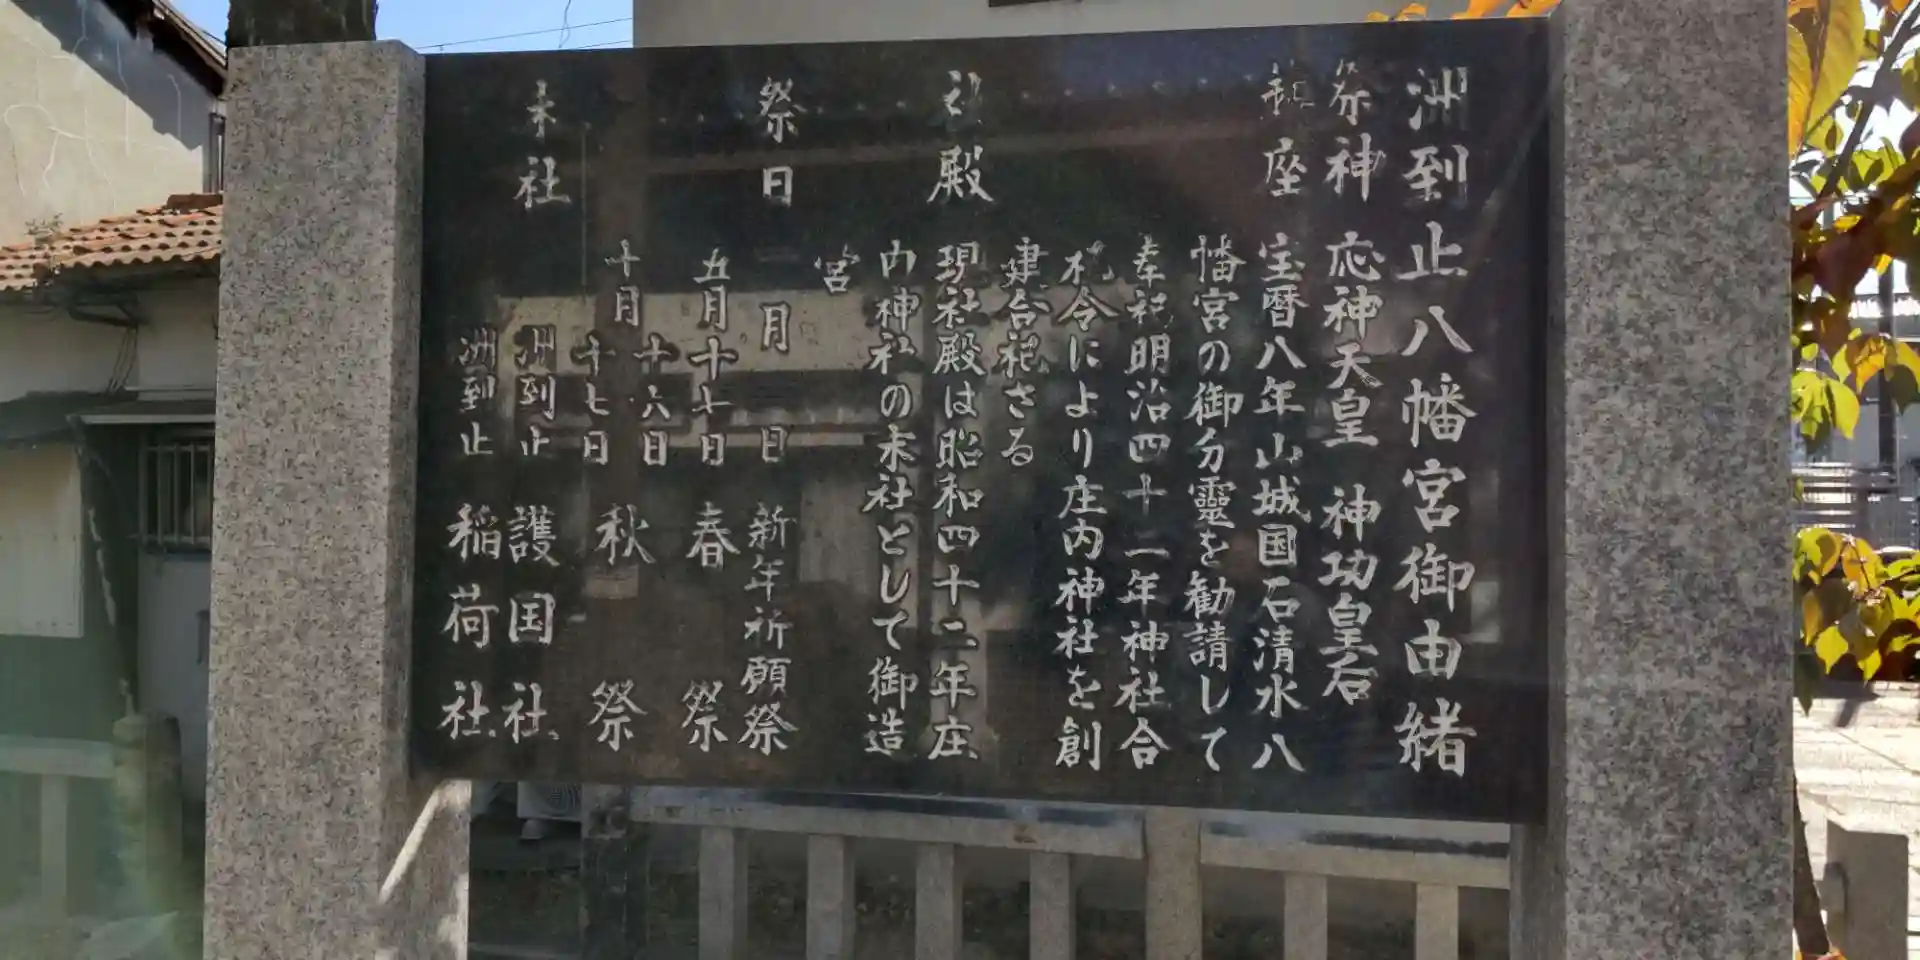 洲到止八幡宮御由緒
祭神 応神天皇 神功皇后
鎮座 宝暦八年山城国石清水八
幡宮の御分靈を勧請して
奉祀明治四十二年神社合
祀令により庄内神社を創
建合祀さる
社殿 現社殿は昭和四十二年庄
内神社の末社として御造
宮
祭日 月 日 新年祈願祭
五月十七日 春祭
十月 十六日
十七日 秋祭
末社 洲到止 護国社
洲到止 稲荷社